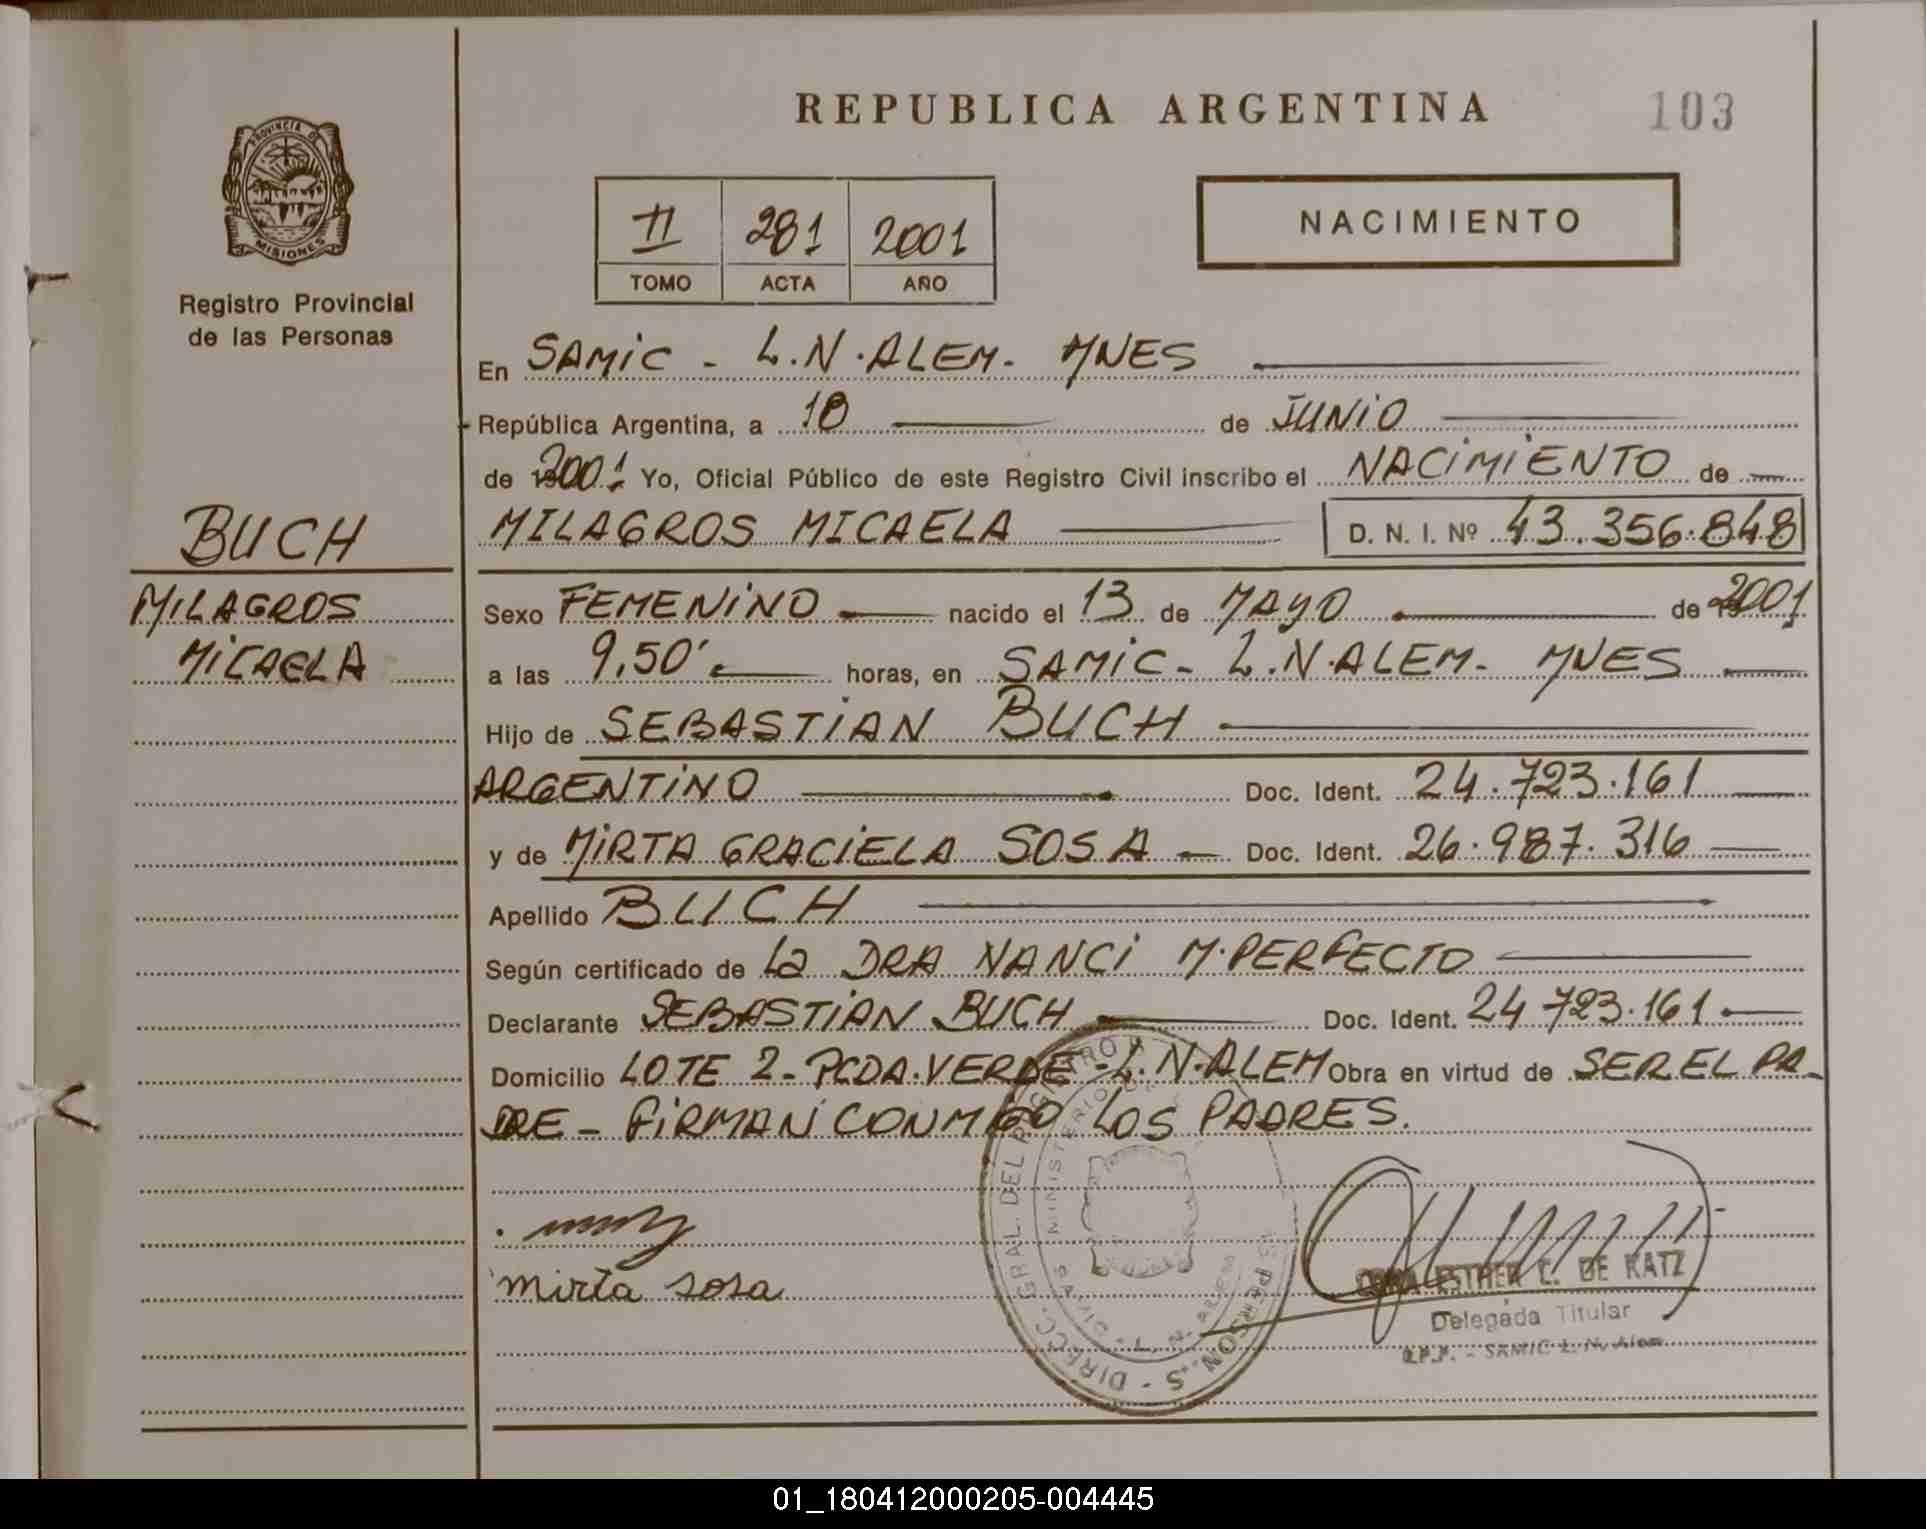 REPUBLICA ARGENTINA 103
PROVINCIA DE
MISIONES
Registro Provincial
de las Personas
II 281 2001
TOMO ACTA AÑO
NACIMIENTO
En SAMIC - L.N.ALEM - MNES
República Argentina, a 18 de JUNIO
de 2001 Yo, Oficial Público de este Registro Civil inscribo el NACIMIENTO de
BUCH
MILAGROS
MICAELA
MILAGROS MICAELA D. N. I. Nº 43.356.848
Sexo FEMENINO nacido el 13 de MAYO de 2001
a las 9,50' horas, en SAMIC - L.N.ALEM - MNES
Hijo de SEBASTIAN BUCH
ARGENTINO Doc. Ident. 24.723.161
y de MIRTA GRACIELA SOSA Doc. Ident. 26.987.316
Apellido BUCH
Según certificado de La DRA NANCI M.PERFECTO
Declarante SEBASTIAN BUCH Doc. Ident. 24 723.161
Domicilio LOTE 2 - PCDA.VERDE - L.N.ALEM Obra en virtud de SER EL PA-
DRE - FIRMAN CONMIGO LOS PADRES.
mirta sosa
DIRECC. GRAL. DEL REGISTRO
MINISTERIO
ESTHER C. DE KATZ
Delegada Titular
R.P.P. - SAMIC L. N. Alem
01_180412000205-004445